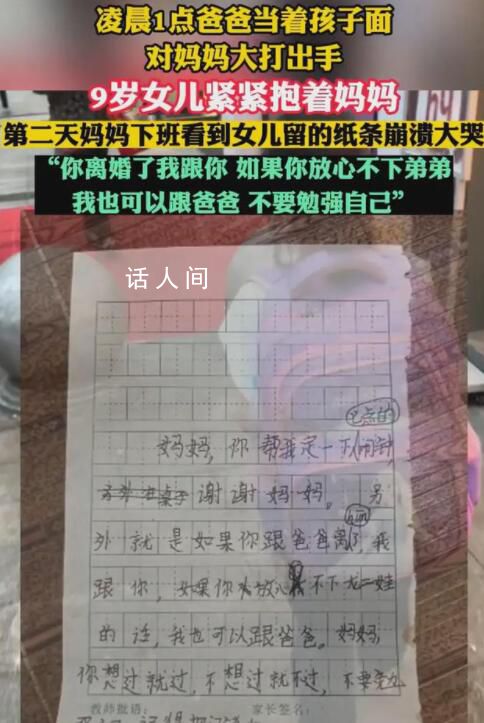 凌晨1点爸爸当着孩子面
对妈妈大打出手
9岁女儿紧紧抱着妈妈
第二天妈妈下班看到女儿留的纸条崩溃大哭
“你离婚了我跟你 如果你放心不下弟弟
我也可以跟爸爸 不要勉强自己”
话人间
点的
妈妈,你帮我定一下闹钟
谢谢妈妈。另
外就是如果你跟爸爸离了,我
跟你,如果你放心不下二娃
的话,我也可以跟爸爸。妈妈
你想过就过,不想过就不过,不要
教师批语: 家长签名: